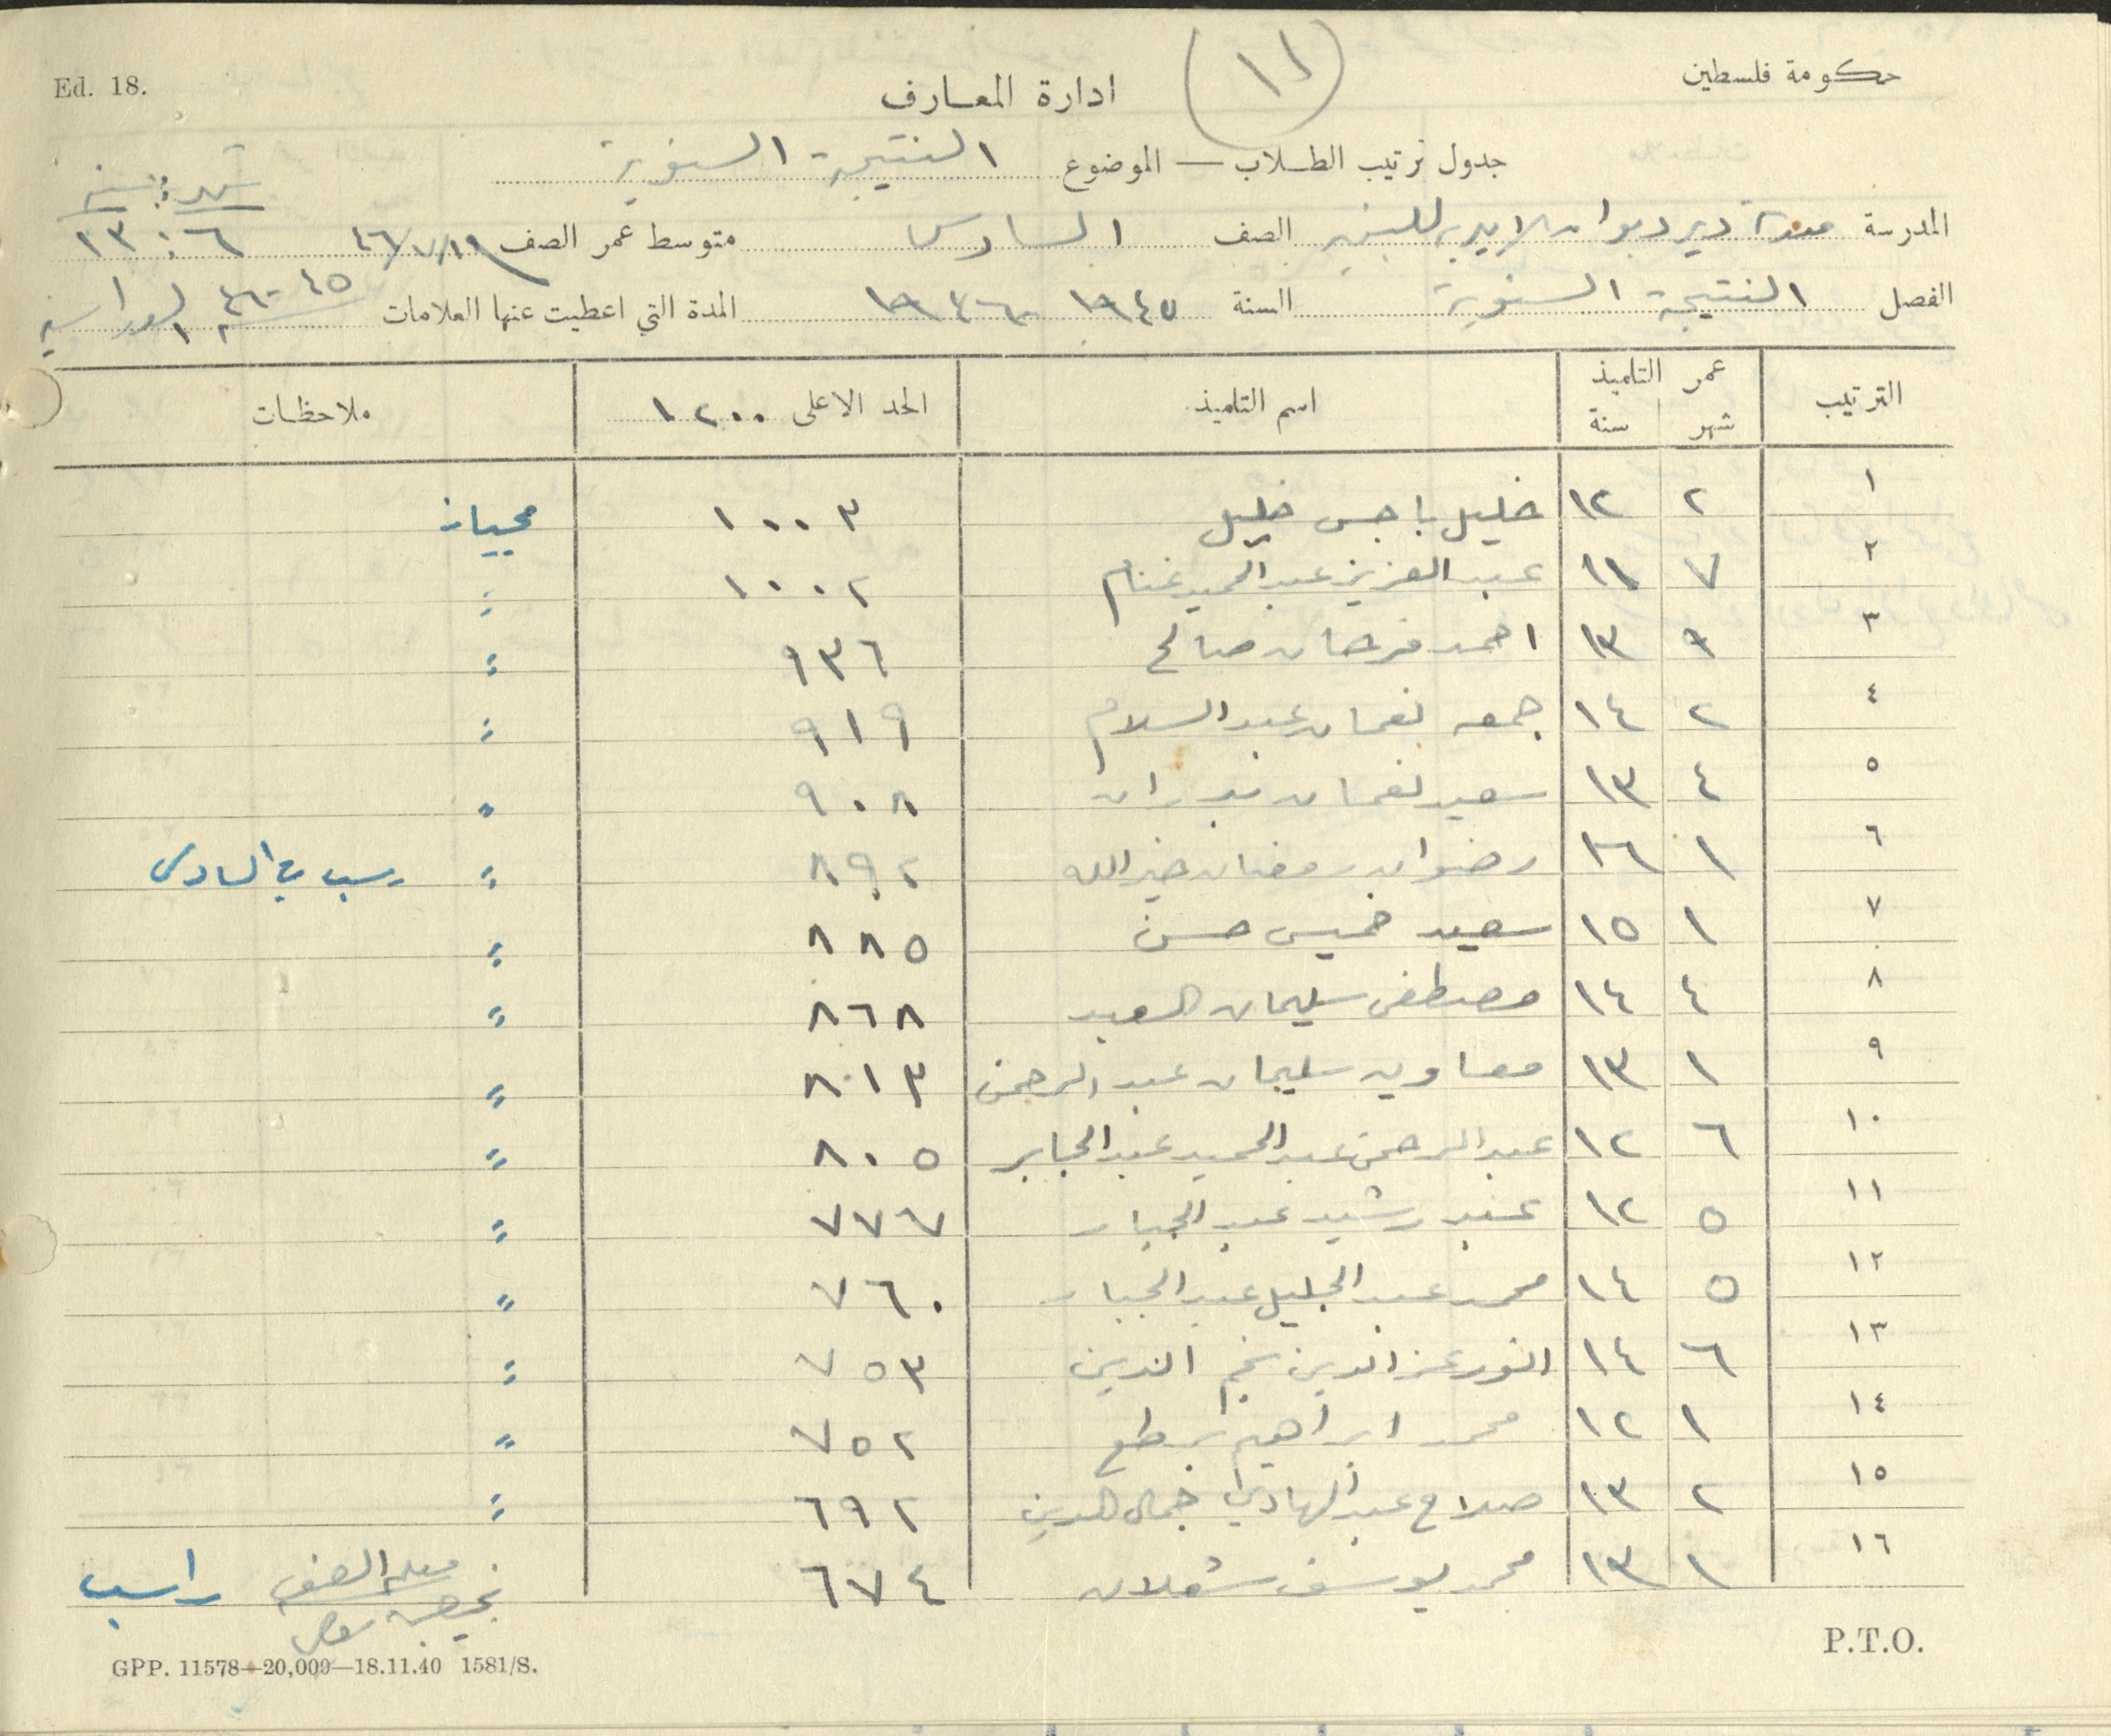 Ed. 18.
حكومة فلسطين
(١١)
ادارة المعارف
جدول ترتيب الطلاب — الموضوع النتيجة السنوية
شهر سنة
المدرسة دير ديوان الاميرية للبنين الصف السادس متوسط عمر الصف ٤٦/٧/١ ٦ : ١٣
الفصل النتيجة السنوية السنة ١٩٤٥ - ١٩٤٦ المدة التي اعطيت عنها العلامات ٤٥ - ٤٦ الدراسية
الترتيب عمر التلميذ شهر سنة اسم التلميذ الحد الاعلى ١٢٠٠ ملاحظات
١ ٢ ١٢ خليل باجس خليل ١٠٠٣
٢ ٧ ١١ عبد العزيز عبد الحميد غنام ١٠٠٢ "
٣ ٩ ١٣ احمد فرحان صالح ٩٣٦ "
٤ ٢ ١٤ جمعه نعمان عبد السلام ٩١٩ "
٥ ٤ ١٣ سعيد نعمان بدران ٩٠٨ "
٦ ١ ١٦ رضوان رمضان خير الله ٨٩٢ " رسب في السادس
٧ ١ ١٥ سعيد خميس حسن ٨٨٥ "
٨ ٤ ١٤ مصطفى سليمان العبد ٨٦٨ "
٩ ١ ١٣ معاويه سليمان عبد الرحمن ٨١٣ "
١٠ ٦ ١٢ عبد الرحمن عبد الحميد عبد الجابر ٨٠٥ "
١١ ٥ ١٢ عبد رشيد عبد الجبار ٧٧٦ "
١٢ ٥ ١٤ محمد عبد الجليل عبد الجبار ٧٦٠ "
١٣ ٦ ١٤ انور عز الدين نجم الدين ٧٥٣ "
١٤ ١ ١٢ محمد ابراهيم ٧٥٢ "
١٥ ٢ ١٣ صلاح عبد الهادي جمال الدين ٦٩٢ "
١٦ ١ ١٣ محمد يوسف شعلان ٦٧٤ راسب
معلم الصف
GPP. 11578—20,000—18.11.40 1581/S.
P.T.O.